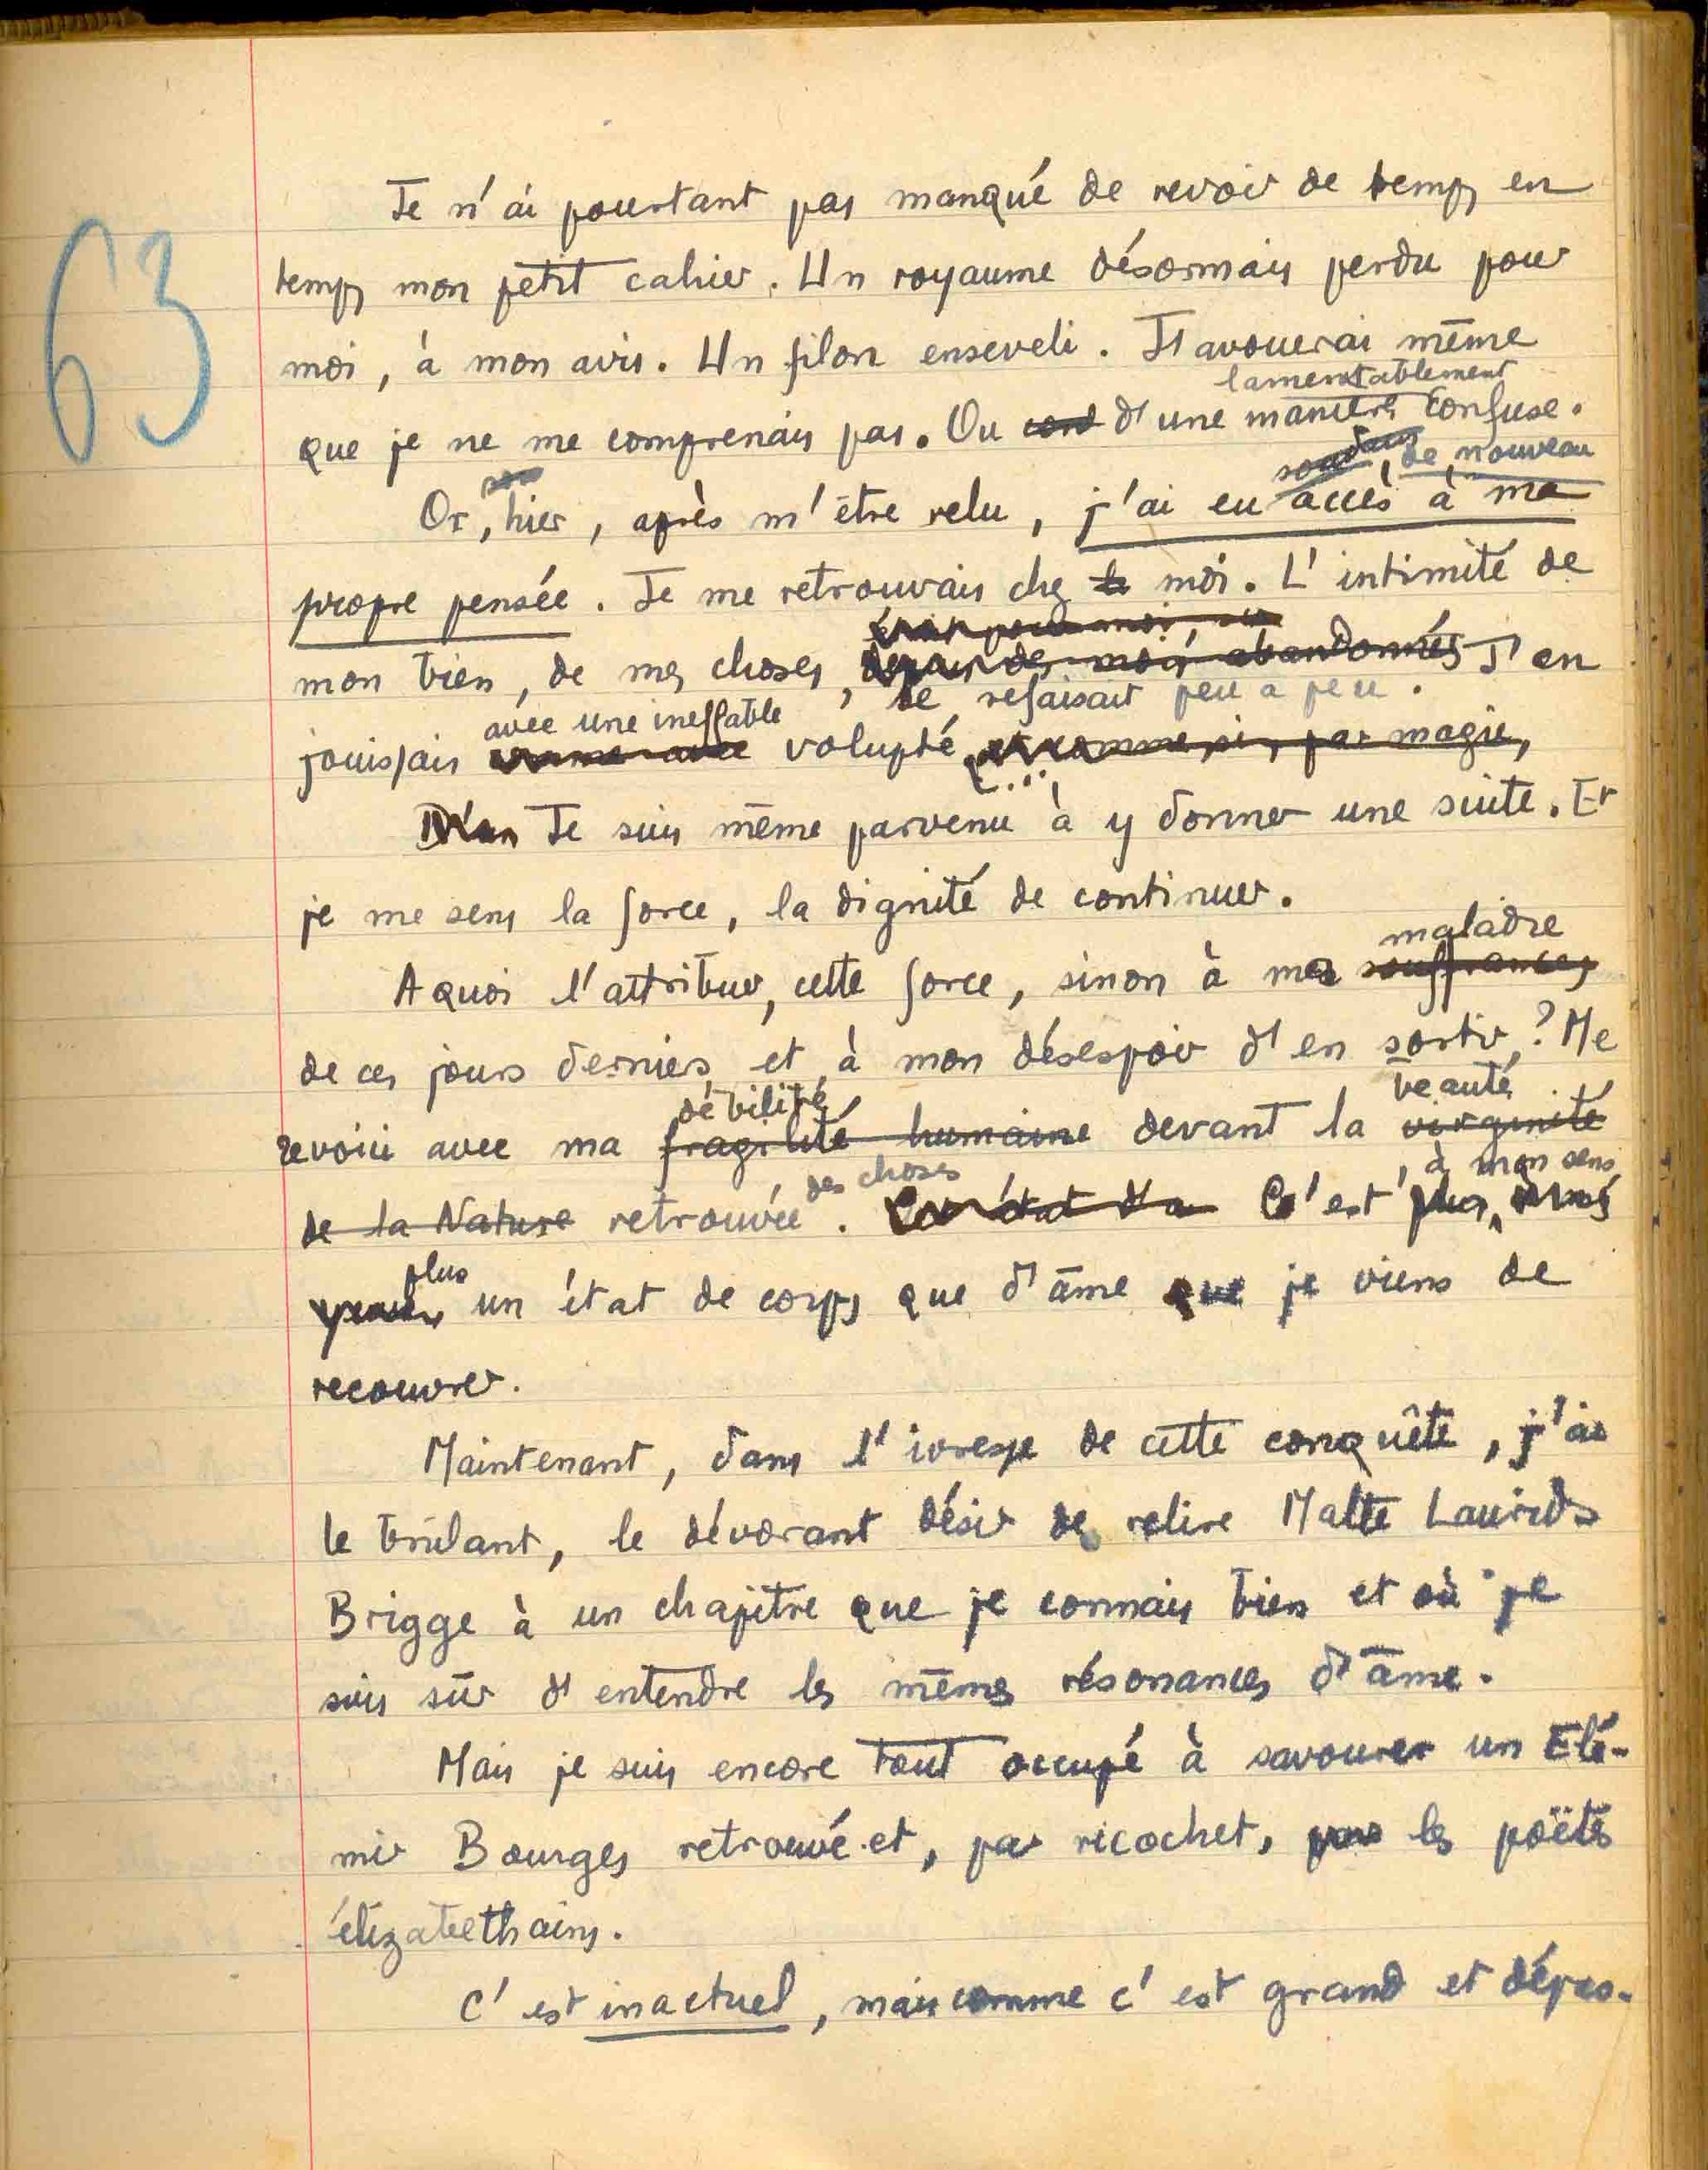 63
Je n'ai pourtant pas manqué de revoir de temps en
temps mon petit cahier. Un royaume désormais perdu pour
moi, à mon avis. Un filon enseveli. J'avouerai même
lamentablement
que je ne me comprenais pas. Ou d'une manière confuse.
soudain, de nouveau
Or, hier, après m'être relu, j'ai eu accès à ma
propre pensée. Je me retrouvais chez moi. L'intimité de
mon bien, de mes choses, abandonnés J'en
, se refaisait peu à peu.
avec une ineffable
jouissais volupté et comme si, par magie,
Je suis même parvenu à y donner une suite. Et
je me sens la force, la dignité de continuer.
maladie
A quoi l'attribuer, cette force, sinon à ma souffrances
de ces jours derniers et à mon désespoir d'en sortir ? Me
débilité beauté
revoici avec ma fragilité humaine devant la virginité
des choses , à mon sens
de la Nature retrouvée. C'est
plus
un état de corps que d'âme que je viens de
recouvrer.
Maintenant, dans l'ivresse de cette conquête, j'ai
le brûlant, le dévorant désir de relire Malte Laurids
Brigge à un chapitre que je connais bien et où je
suis sûr d'entendre les mêmes résonances d'âme.
Mais je suis encore tout occupé à savourer un Elé-
mir Bourges retrouvé et, par ricochet, les poëtes
élizabethains.
C'est inactuel, mais comme c'est grand et dépas-